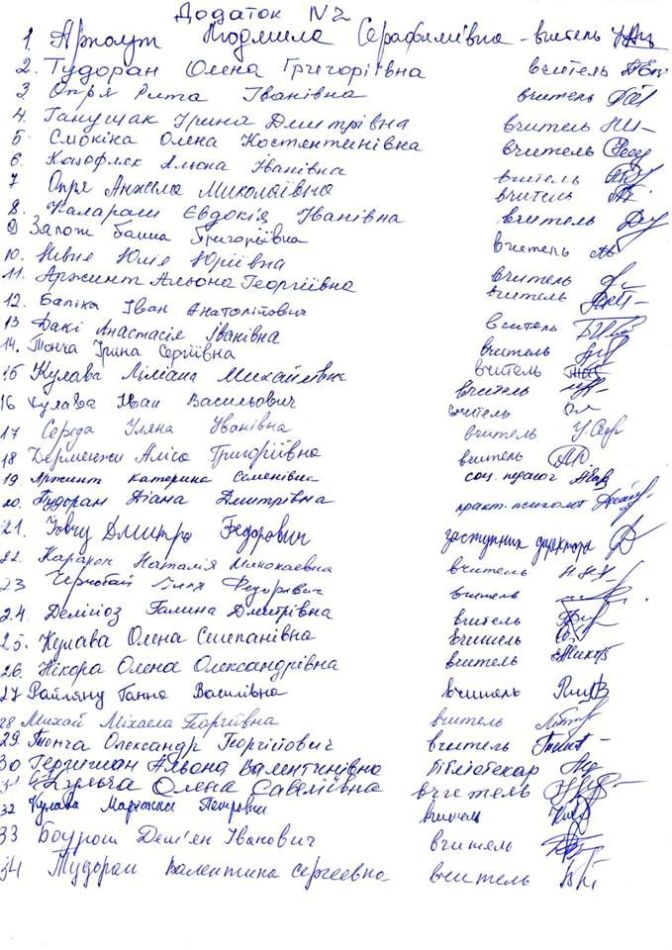 Додаток №2
1. Арнаут Людмила Серафимівна - вчитель
2. Тудоран Олена Григоріївна вчитель
3 Опря Рита Іванівна вчитель
4. Ганущак Ірина Дмитрівна вчитель
5. Смокіна Олена Костянтинівна вчитель
6. Альона Іванівна вчитель
7 Опря Анжела Миколаївна вчитель
8. Калараш Євдокія Іванівна вчитель
9 Григоріївна вчитель
10. Юлія Юріївна вчитель
11. Аржинт Альона Георгіївна вчитель
12. Баліка Іван Анатолійович вчитель
13 Факі Анастасія Іванівна вчитель
14. Тонча Ірина Сергіївна вчитель
15 Кулава Ліліана Михайлівна вчитель
16 Кулава Іван Васильович вчитель
17 Середа Уляна Іванівна вчитель
18 Дерменжи Аліса Григоріївна вчитель
19. Аржинт Катерина Семенівна соц. педагог
20. Тудоран Діана Дмитрівна практ. психолог
21. Дмитро Федорович заступник директора
22. Наталія Миколаевна вчитель
23 Чернобай Ілля Федорович вчитель
24. Делігіоз Галина Дмитрівна вчитель
25. Кулава Олена Степанівна вчитель
26. Нікора Олена Олександрівна вчитель
27 Райляну Ганна Василівна вчитель
28 Михай Міхаела Георгіївна вчитель
29. Тонча Олександр Георгійович вчитель
30 Альона Валентинівна бібліотекар
31 Олена Савеліївна вчитель
32 Кулава Петрівна вчитель
33 Боурош Дем'ян Іванович вчитель
34 Тудоран Валентина Сергеевна вчитель